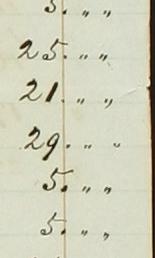 5. „ „
25. „ „
21. „ „
29. „ „
5. „ „
5. „ „